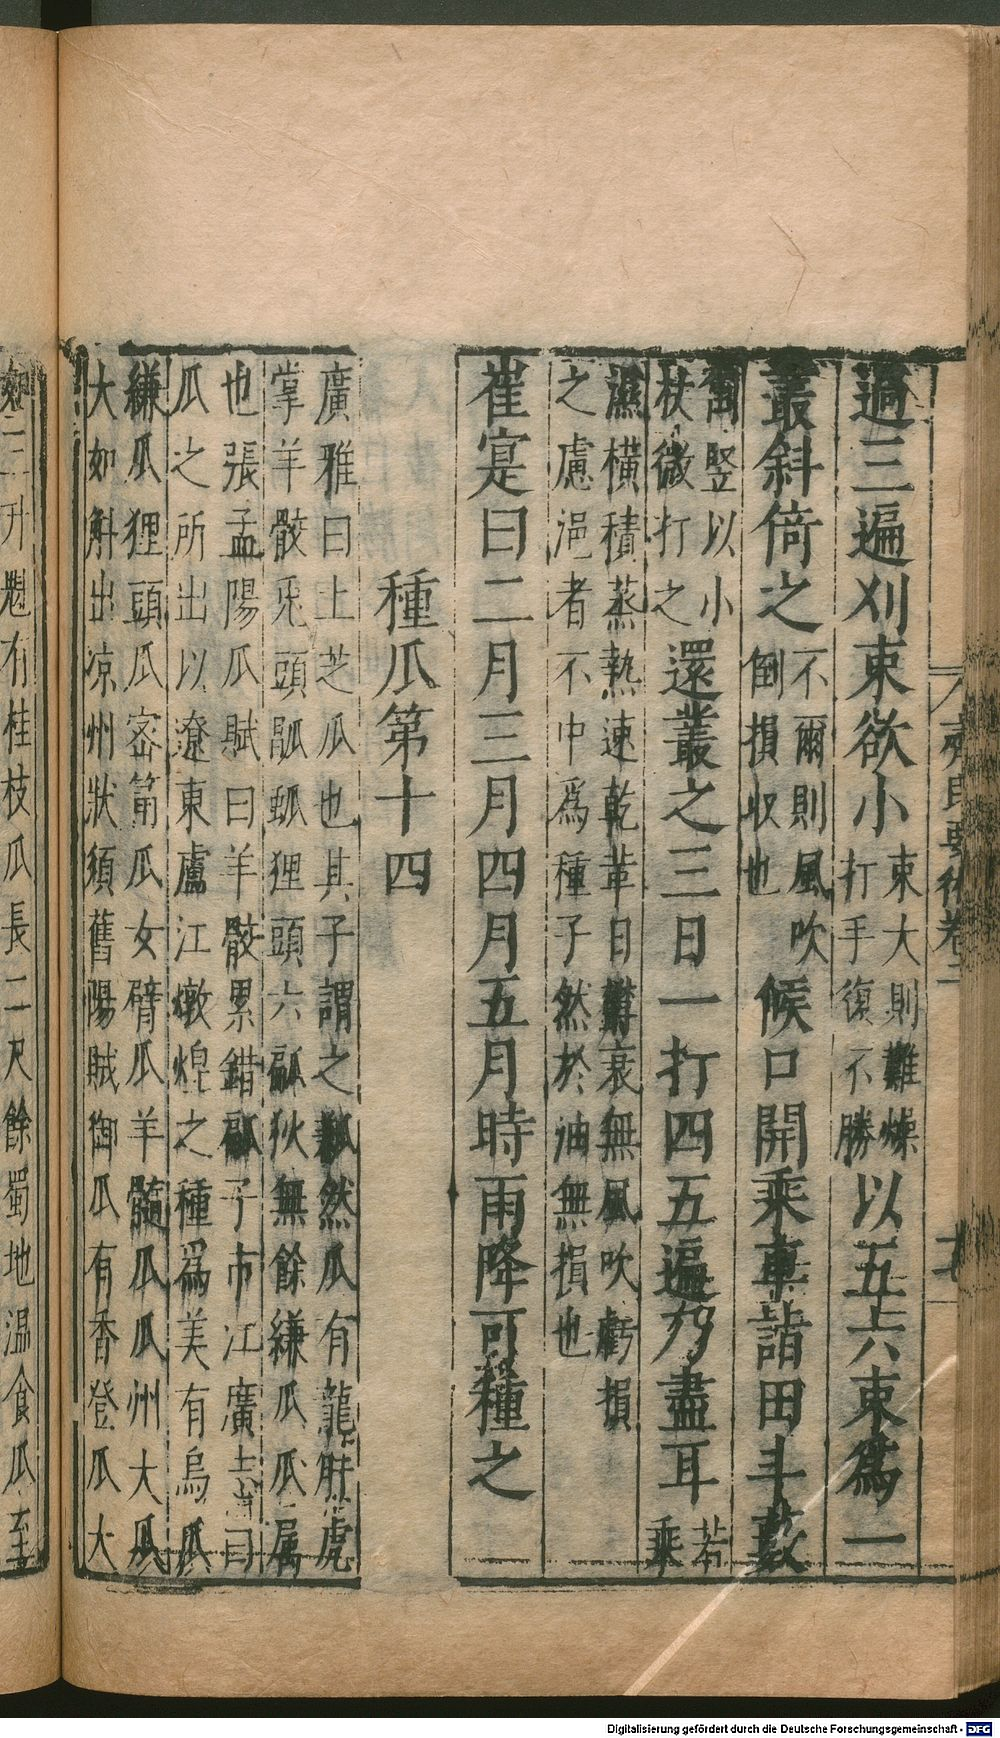 過三遍刈束欲小束大則難燥打手復不勝以五六束爲一
叢斜倚之不爾則風吹倒損收也候口開乘車詣田斗藪
倒竪以小杖微打之還叢之三日一打四五遍乃盡耳若乘
濕横積蒸熱速乾䓍日鬱裛無風吹虧損之慮浥者不中爲種子然於油無損也
崔寔曰二月三月四月五月時雨降可種之
種瓜第十四
廣雅曰土芝瓜也其子謂之瓤然瓜有龍肝虎
掌羊骹兎頭瓝㼎狸頭六㼐狄無餘縑瓜瓜属
也張孟陽瓜賦曰羊骹累錯㼐子市江廣志曰
瓜之所出以遼東廬江燉煌之種爲美有烏瓜
縑瓜狸頭瓜宻筩瓜女臂瓜羊髓瓜瓜州大瓜
大如斛出凉州狀須舊陽賊御瓜有香登瓜大
如三升魁有桂枝瓜長二尺餘蜀地温食瓜至
齊民要術卷二
Digitalisierung gefördert durch die Deutsche Forschungsgemeinschaft - DFG